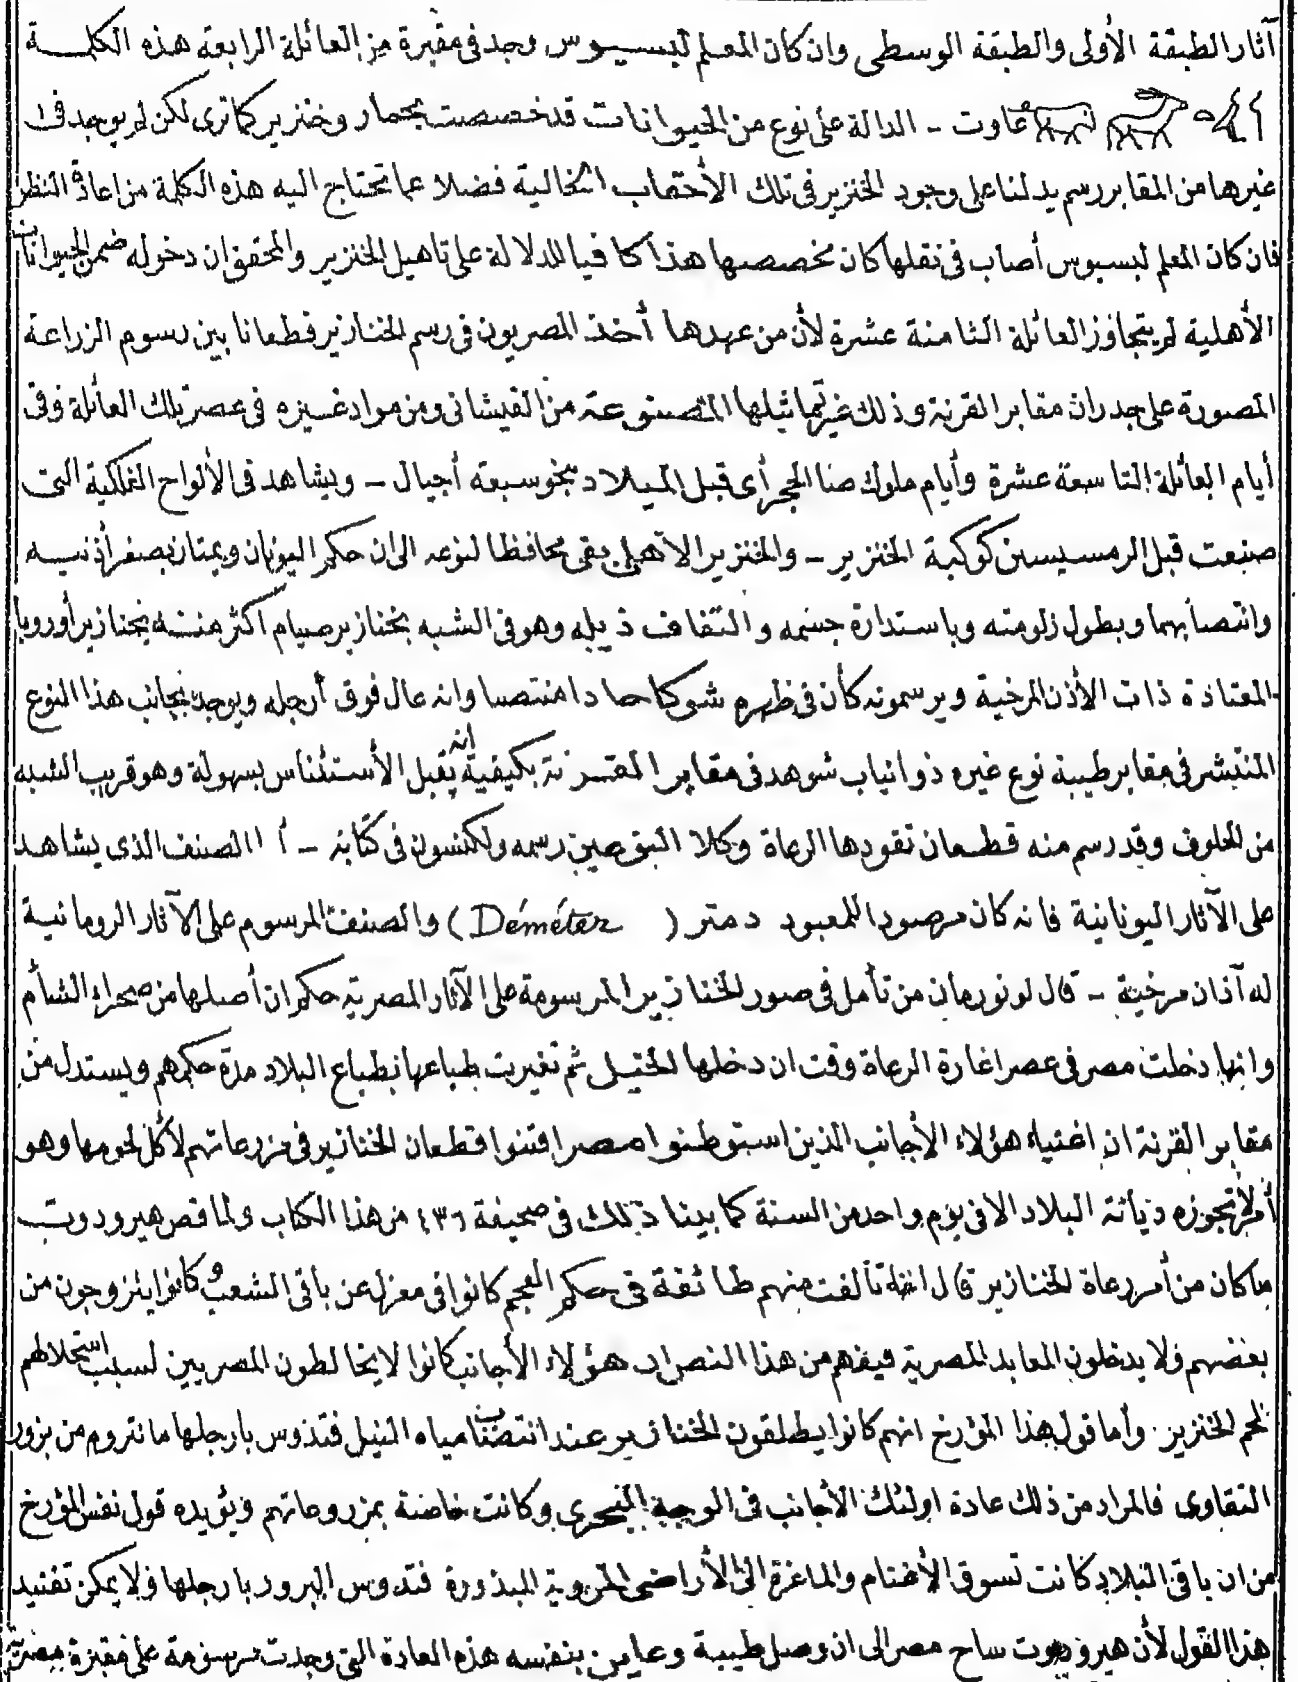 آثار الطبقة الأولى والطبقة الوسطى وان كان المعلم لبسيوس وجد فى مقبرة من العائلة الرابعة هذه الكلمة
عاوت - الدالة على نوع من الحيوانات قد خصصت بحمار وخنزير كما ترى لكن لم يوجد فى
غيرها من المقابر رسم يدلنا على وجود الخنزير فى تلك الأحقاب الخالية فضلا عما تحتاج اليه هذه الكلمة من اعادة النظر
فان كان المعلم لبسيوس أصاب فى نقلها كان مخصصها هذا كافيا للدلالة على تاهيل الخنزير والمحقق ان دخوله ضمن الحيوانات
الأهلية لم يتجاوز العائلة الثامنة عشرة لأن من عهدها أخذ المصريون فى رسم الخنازير قطعانا بين رسوم الزراعة
المصورة على جدران مقابر القرنة وذلك غير تماثيلها المصنوعة من القيشانى ومن مواد غيره فى عصر تلك العائلة وفى
أيام العائلة التاسعة عشرة وأيام ملوك صا الحجر أى قبل الميلاد بنحو سبعة أجيال - ويشاهد فى الألواح الفلكية التى
صنعت قبل الرمسيسين كوكبة الخنزير - والخنزير الاهلى بقى محافظا لنوعه الى ان حكم اليونان ويمتاز بصغر أذنيه
وانتصابهما وبطول زلومته وباستدارة جسمه والتفاف ذيله وهو فى الشبه بخنازير صيام اكثر منه بخنازير أوروبا
المعتادة ذات الأذن المرخية ويرسمونه كأن فى ظهره شوكا حادا منتصبا وانه عال فوق أرجله ويوجد بجانب هذا النوع
المنتشر فى مقابر طيبة نوع غيره ذو انياب شوهد فى مقابر القرنة بكيفية انه يقبل الأستئناس بسهولة وهو قريب الشبه
من الحلوف وقد رسم منه قطعان تقودها الرعاة وكلا النوعين رسمه ولكنسون فى كتابه - أما الصنف الذى يشاهد
على الآثار اليونانية فانه كان مرصودا للمعبود دمتر (Déméter) والصنف المرسوم على الآثار الرومانية
له آذان مرخية - قال لونورمان من تأمل فى صور الخنازير المرسومة على الآثار المصرية حكم ان أصلها من صحراء الشأم
وانها دخلت مصر فى عصر اغارة الرعاة وقت ان دخلها الخيل ثم تغيرت طباعها بطباع البلاد مدة حكمهم ويستدل من
مقابر القرنة ان اغنياء هؤلاء الأجانب الذين استوطنوا مصر اقتنوا قطعان الخنازير فى مزروعاتهم لأكل لحومها وهو
أمر لا تجوزه ديانة البلاد الا فى يوم واحد من السنة كما بينا ذلك فى صحيفة ٤٣٦ من هذا الكتاب ولما قص هيرودوت
ما كان من أمر رعاة الخنازير قال انها تألفت منهم طائفة فى حكم العجم كانوا فى معزل عن باقى الشعب وكانوا يتزوجون من
بعضهم ولا يدخلون المعابد المصرية فيفهم من هذا النص ان هؤلاء الأجانب كانوا لا يخالطون المصريين لسبب استحلالهم
لحم الخنزير. وأما قول هذا المؤرخ انهم كانوا يطلقون الخنازير عند انتضاب مياه النيل فتدوس بارجلها ما نتروم من بزور
التقاوى فالمراد من ذلك عادة اولئك الأجانب فى الوجه البحرى وكانت خاصة بمزروعاتهم ويؤيده قول نفس المؤرخ
من ان باقى البلاد كانت تسوق الأغنام والماعزة الى الأراضى المروية المبذورة فتدوس البزور بارجلها ولا يمكن تفنيد
هذا القول لأن هيرودوت ساح مصر الى ان وصل طيبة وعاين بنفسه هذه العادة التى وجدت مرسومة على مقبرة مصرية